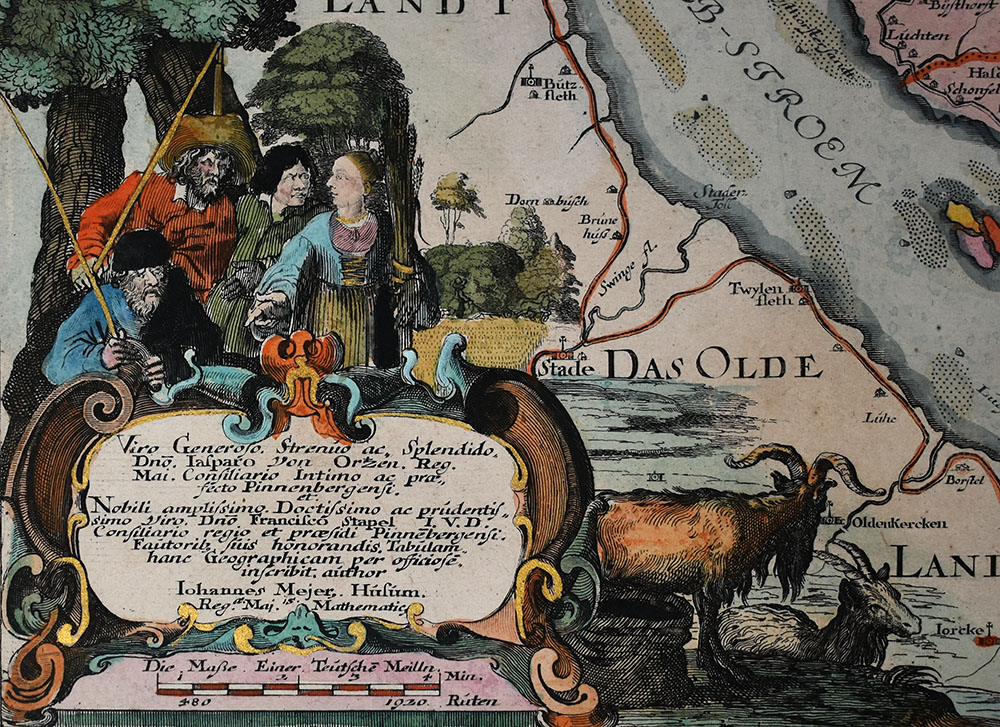 LAND T
BB-STROEM
Bijsthorst
Lüchten
Schonfel
Bütz
fleth
Dorn büsch
Brüne
hüss
Stader
Swinge fl.
Twylen
fleth
Stade
DAS OLDE
Lühe
Borstel
OldenKercken
LAND
Iorcke
Viro Generoso. Strenuo ac, Splendido.
Dnō. Iasparo Von Ortzen. Reg.
Mai. Consiliario Intimo ac præ,
fecto Pinnenbergensi.
et
Nobili amplissimo Doctissimo ac prudentis,
simo Viro, Dnō Francisco Stapel I.V.D.
Consiliario regio et præsidi Pinnebergensi.
Fautorib, suis honorandis, Tabulam
hanc Geographicam per officiose.
inscribit. author
Iohannes Mejer. Hüsum.
Reg. Maj. Mathematic,
Die Maße Einer Teütschē Meilln.
1 2 3 4 Min.
480 1920 Rüten